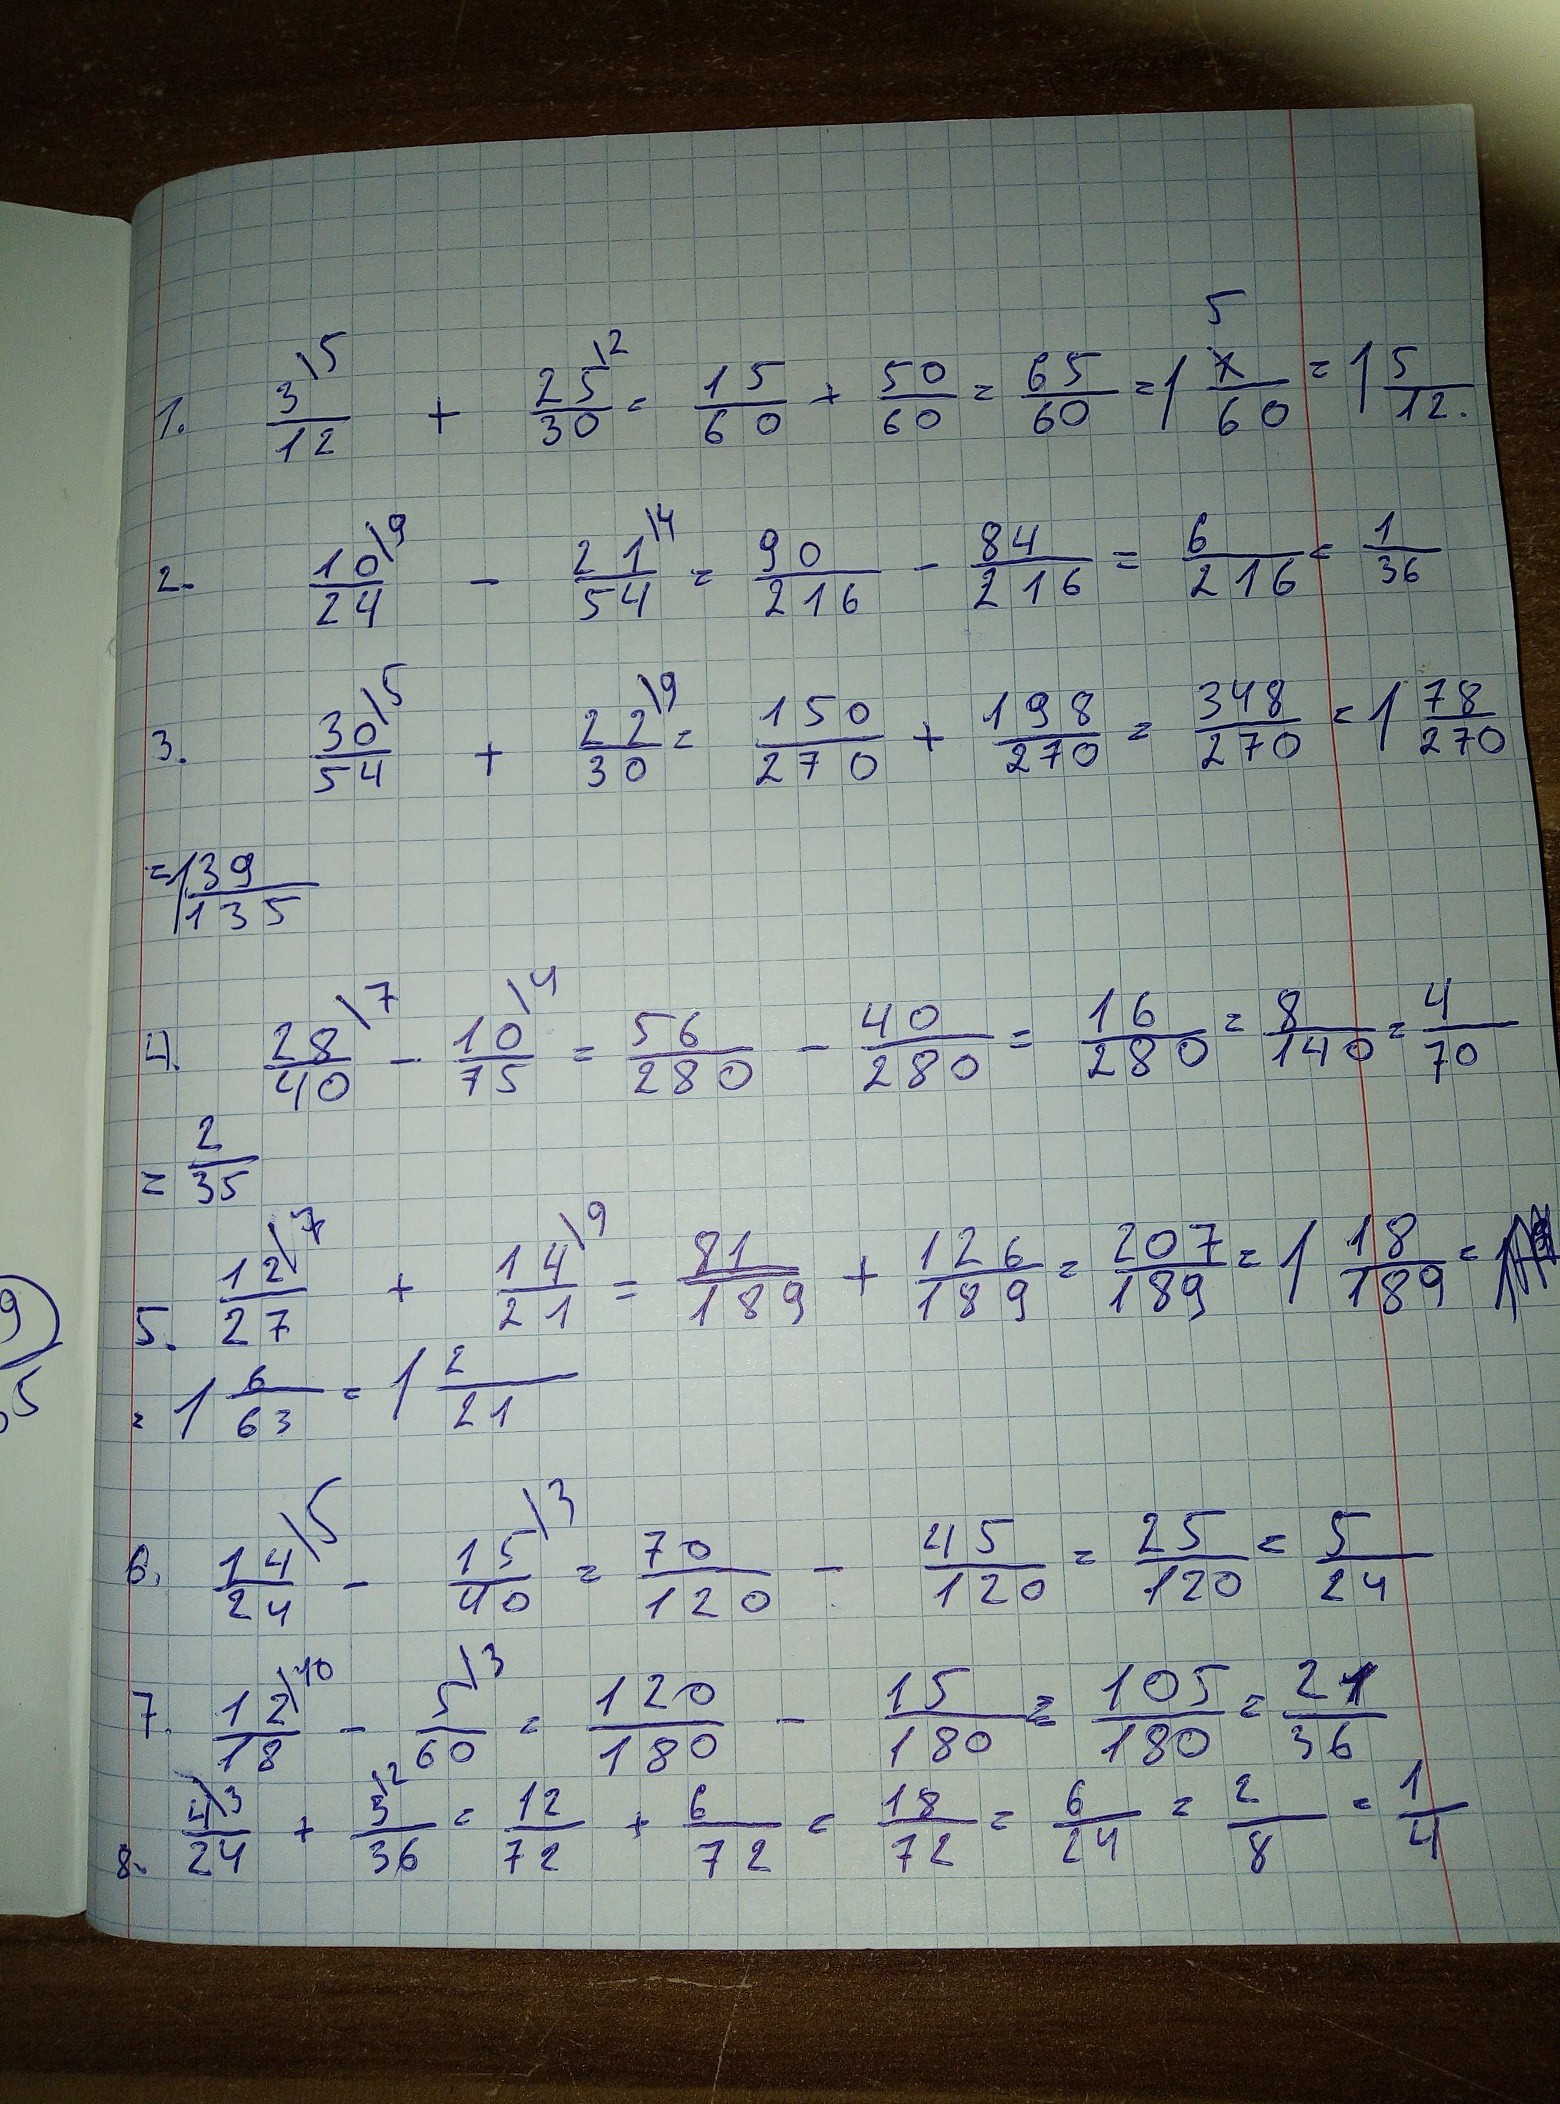 1. 3\5/12 + 25\2/30 = 15/60 + 50/60 = 65/60 = 1 5/60 = 1 5/12.
2. 10\9/24 - 21\4/54 = 90/216 - 84/216 = 6/216 = 1/36
3. 30\5/54 + 22\9/30 = 150/270 + 198/270 = 348/270 = 1 78/270
= 1 39/135
4. 28\7/40 - 10\4/75 = 56/280 - 40/280 = 16/280 = 8/140 = 4/70
= 2/35
5. 12\7/27 + 14\9/21 = 81/189 + 126/189 = 207/189 = 1 18/189 =
= 1 6/63 = 1 2/21
6. 14\5/24 - 15\3/40 = 70/120 - 45/120 = 25/120 = 5/24
7. 12\10/18 - 5\3/60 = 120/180 - 15/180 = 105/180 = 21/36
8. 4\3/24 + 3\2/36 = 12/72 + 6/72 = 18/72 = 6/24 = 2/8 = 1/4